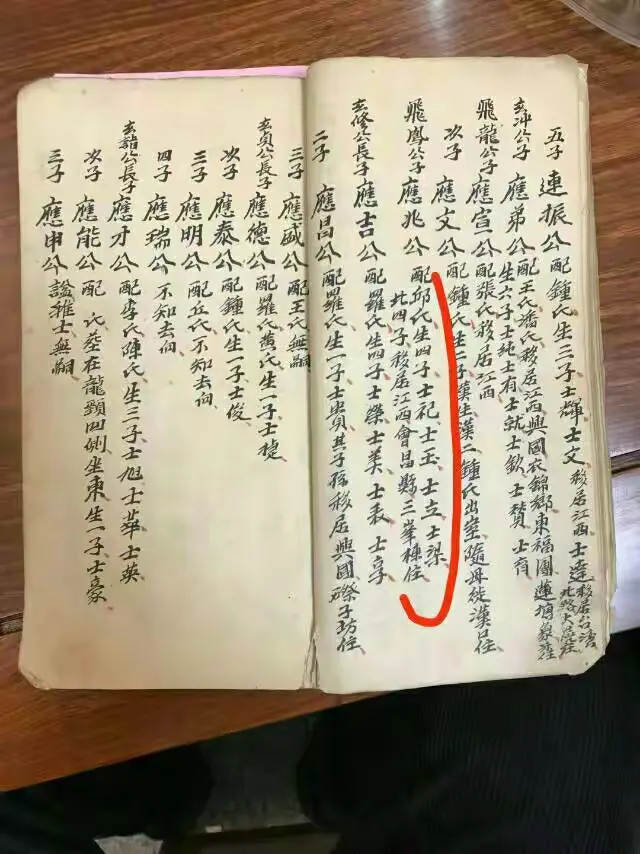 五子 連振公 配鍾氏生三子士輝士文移居江西士達移居台湾
北路大
玄冲公子 應弟公 配王氏潘氏移居江西興國衣錦鄉東福團蓮塘
生六子士純士有士就士欽士贊士育
飛龍公子 應宣公 配張氏移居江西
次子 應文公 配鍾氏生二子漢生漢二鍾氏出室隨母徙漢口住
飛鳳公子 應兆公 配邱氏生四子士祀士玉士立士梁
北四子移居江西會昌縣三峯棟住
玄修公長子 應吉公 配羅氏生四子士榮士美士表士享
二子 應昌公 配羅氏生一子士貴其子孫移居興國磜子坊住
三子 應盛公 配王氏無嗣
玄貢公長子 應德公 配羅氏黄氏生一子士捷
次子 應泰公 配鍾氏生一子士俊
三子 應明公 配丘氏不知去向
四子 應瑞公 不知去向
玄諳公長子 應才公 配李氏陳氏生三子士旭士華士英
次子 應能公 配 氏塟在龍頸四側坐東生一子士豪
三子 應申公 謚雅士無嗣